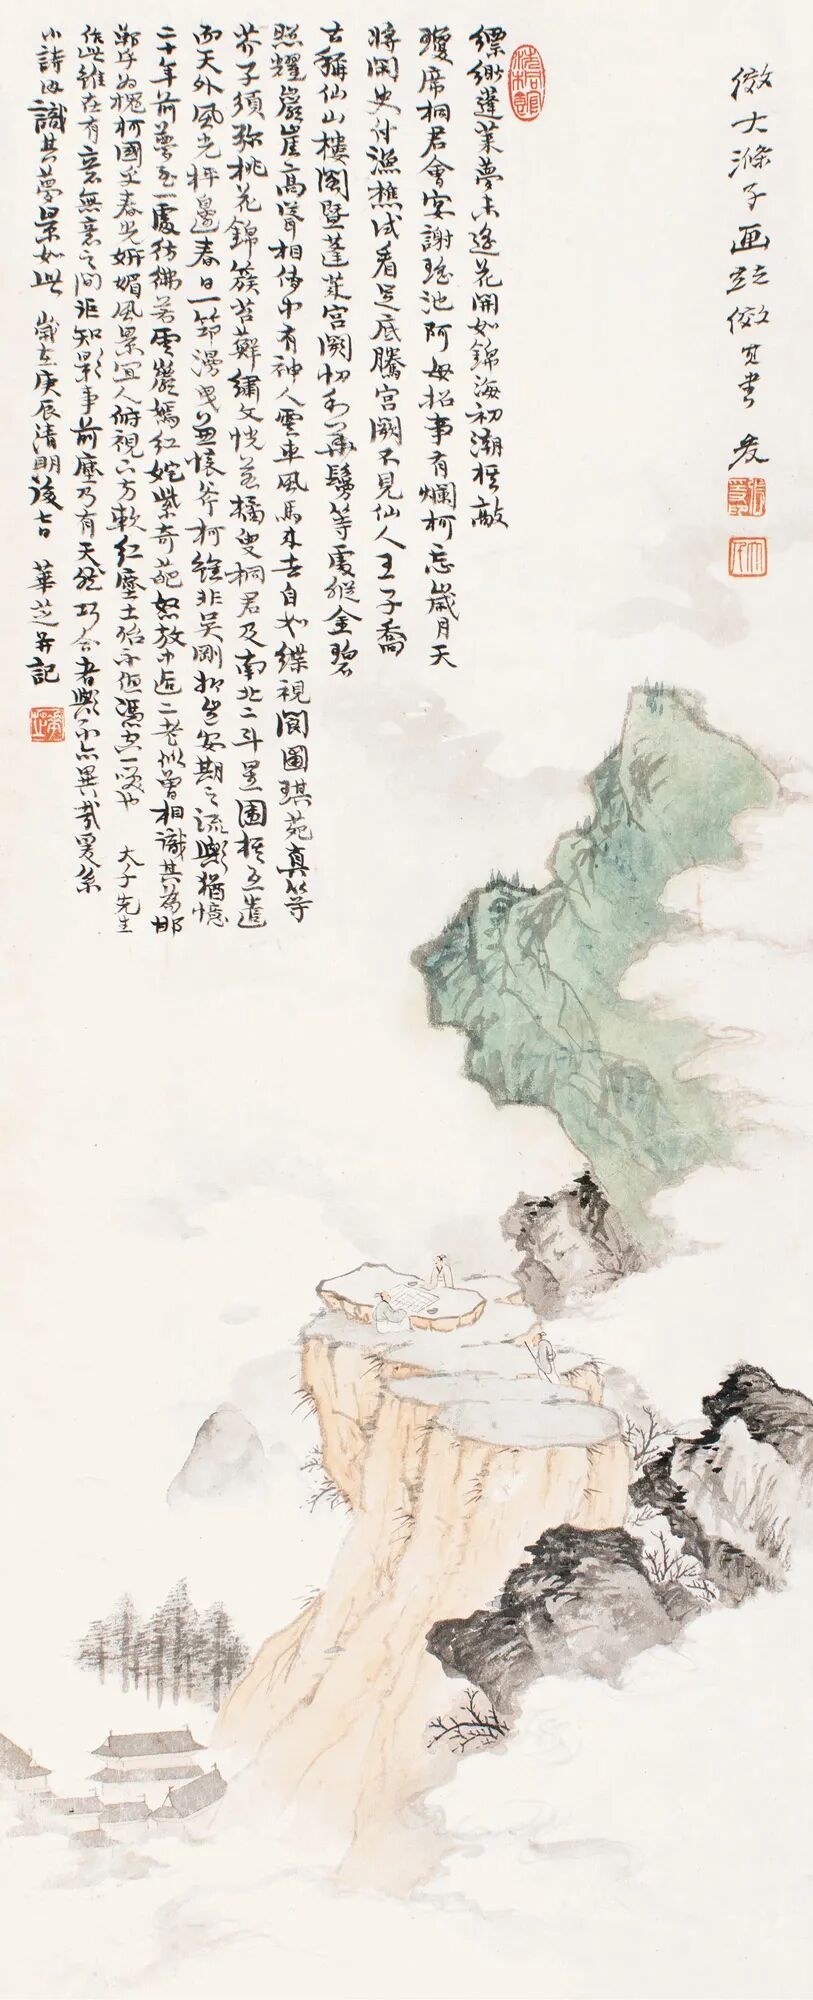 倣大滌子画竝倣其書 爰
縹緲蓬萊夢未遙花開如錦海初潮棋敲
瓊席桐君會宴謝瑤池阿母招事有爛柯忘歲月天
將閑史付漁樵試看足底騰宮闕不見仙人王子喬
古稱仙山樓閣暨蓬萊宮闕切利華鬘等處縱金碧
照耀巖崖高聳相傳中有神人雲車風馬來去自如蝶視閬圃琪苑真等
芥子須弥桃花錦簇苔蘚繡文恍若橘叟桐君及南北二斗星圍棋互遣
而天外風光枰邊春日一筇漫曳並懷斧柯縱非吳剛抑亦安期之流歟猶憶
二十年前夢至一處彷彿若雲巖嫣紅姹紫奇葩怒放中逅二老似曾相識其為耶
鄭乎為槐柯國乎春光妍媚風景宜人俯視六方軟紅塵土殆不但憑空一噓也 大千先生
作此雖在有意無意之間詎知影事前塵乃有天然巧合者歟不亦異哉爰系
小詩以識其夢景如此 歲在庚辰清明後七日 華芝并記